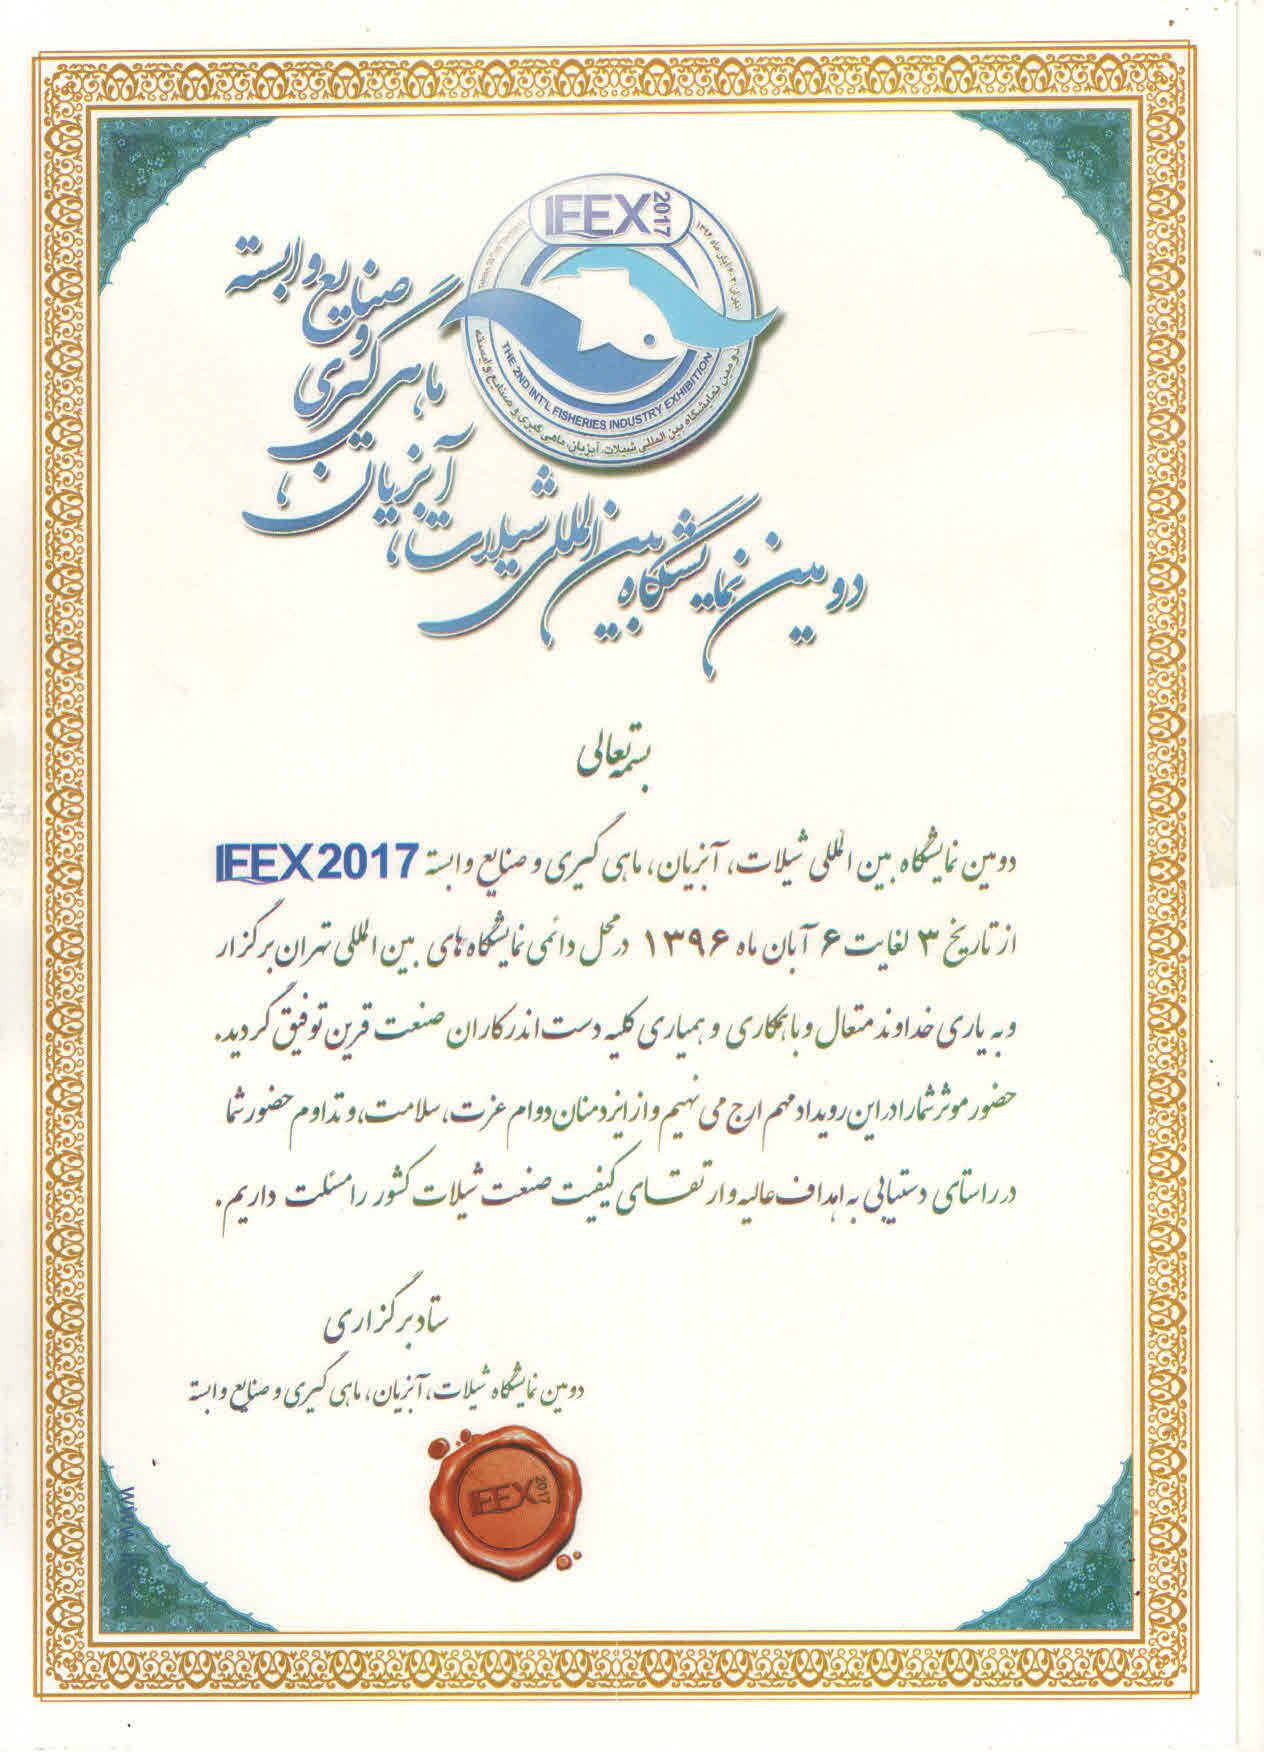 IFEX 2017
THE 2ND INT'L FISHERIES INDUSTRY EXHIBITION
دومین نمایشگاه بین المللی شیلات، آبزیان، ماهی گیری و صنایع وابسته
دومین نمایشگاه بین المللی شیلات، آبزیان، ماهی گیری و صنایع وابسته
بسمه تعالی
دومین نمایشگاه بین المللی شیلات، آبزیان، ماهی گیری و صنایع وابسته IFEX2017
از تاریخ ۳ لغایت ۶ آبان ماه ۱۳۹۶ در محل دائمی نمایشگاه های بین المللی تهران برگزار
و به یاری خداوند متعال و با همکاری و همیاری کلیه دست اندرکاران صنعت قرین توفیق گردید.
حضور موثر شما را در این رویداد مهم ارج می نهیم و از ایزدمنان دوام عزت، سلامت، و تداوم حضور شما
در راستای دستیابی به اهداف عالیه و ارتقای کیفیت صنعت شیلات کشور را مسئلت داریم.
ستاد برگزاری
دومین نمایشگاه شیلات، آبزیان، ماهی گیری و صنایع وابسته
IFEX 2017
www.